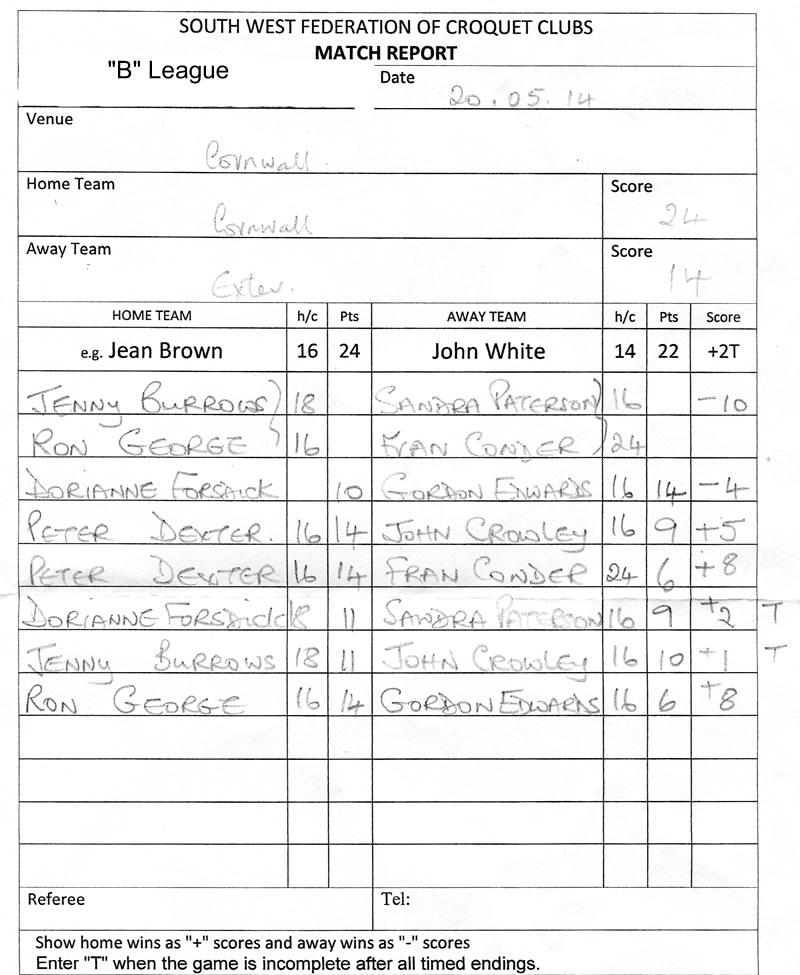 SOUTH WEST FEDERATION OF CROQUET CLUBS
MATCH REPORT
"B" League
Date
20.05.14
Venue
Cornwall.
Home Team
Score
Cornwall
24
Away Team
Score
Exter.
14
HOME TEAM h/c Pts AWAY TEAM h/c Pts Score
e.g. Jean Brown 16 24 John White 14 22 +2T
JENNY BURROWS) 18 SANDRA PATERSON) 16 -10
RON GEORGE ) 16 FRAN CONDER ) 24
DORIANNE FORSDICK 10 GORDON EDWARDS 16 14 -4
PETER DEXTER. 16 14 JOHN CROWLEY 16 9 +5
PETER DEXTER 16 14 FRAN CONDER 24 6 +8
DORIANNE FORSDICK 18 11 SANDRA PATERSON 16 9 +2 T
JENNY BURROWS 18 11 JOHN CROWLEY 16 10 +1 T
RON GEORGE 16 14 GORDON EDWARDS 16 6 +8
Referee Tel:
Show home wins as "+" scores and away wins as "-" scores
Enter "T" when the game is incomplete after all timed endings.